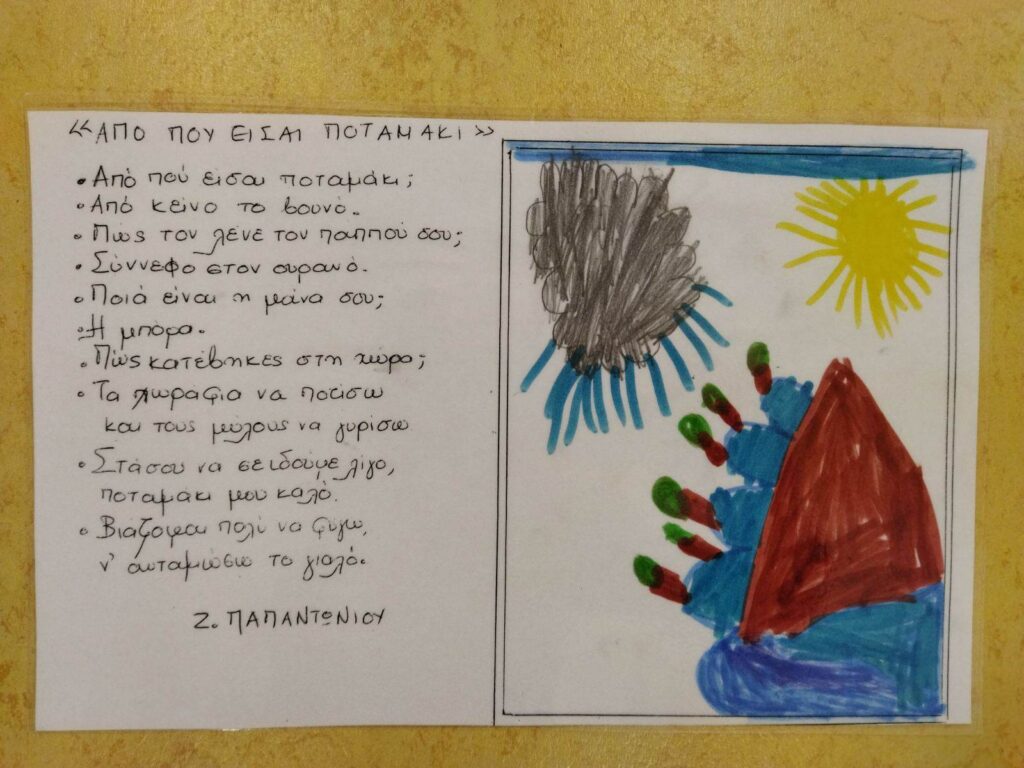 «ΑΠΟ ΠΟΥ ΕΙΣΑΙ ΠΟΤΑΜΑΚΙ»
• Από πού είσαι ποταμάκι;
• Από κείνο το βουνό.
• Πώς τον λένε τον παππού σου;
• Σύννεφο στον ουρανό.
• Ποιά είναι η μάνα σου;
• Η μπόρα.
• Πώς κατέβηκες στη χώρα;
• Τα χωράφια να ποτίσω
και τους μύλους να γυρίσω
• Στάσου να σε ιδούμε λίγο,
ποταμάκι μου καλό.
• Βιάζομαι πολύ να φύγω,
ν' ανταμώσω το γιαλό.
Ζ. ΠΑΠΑΝΤΩΝΙΟΥ